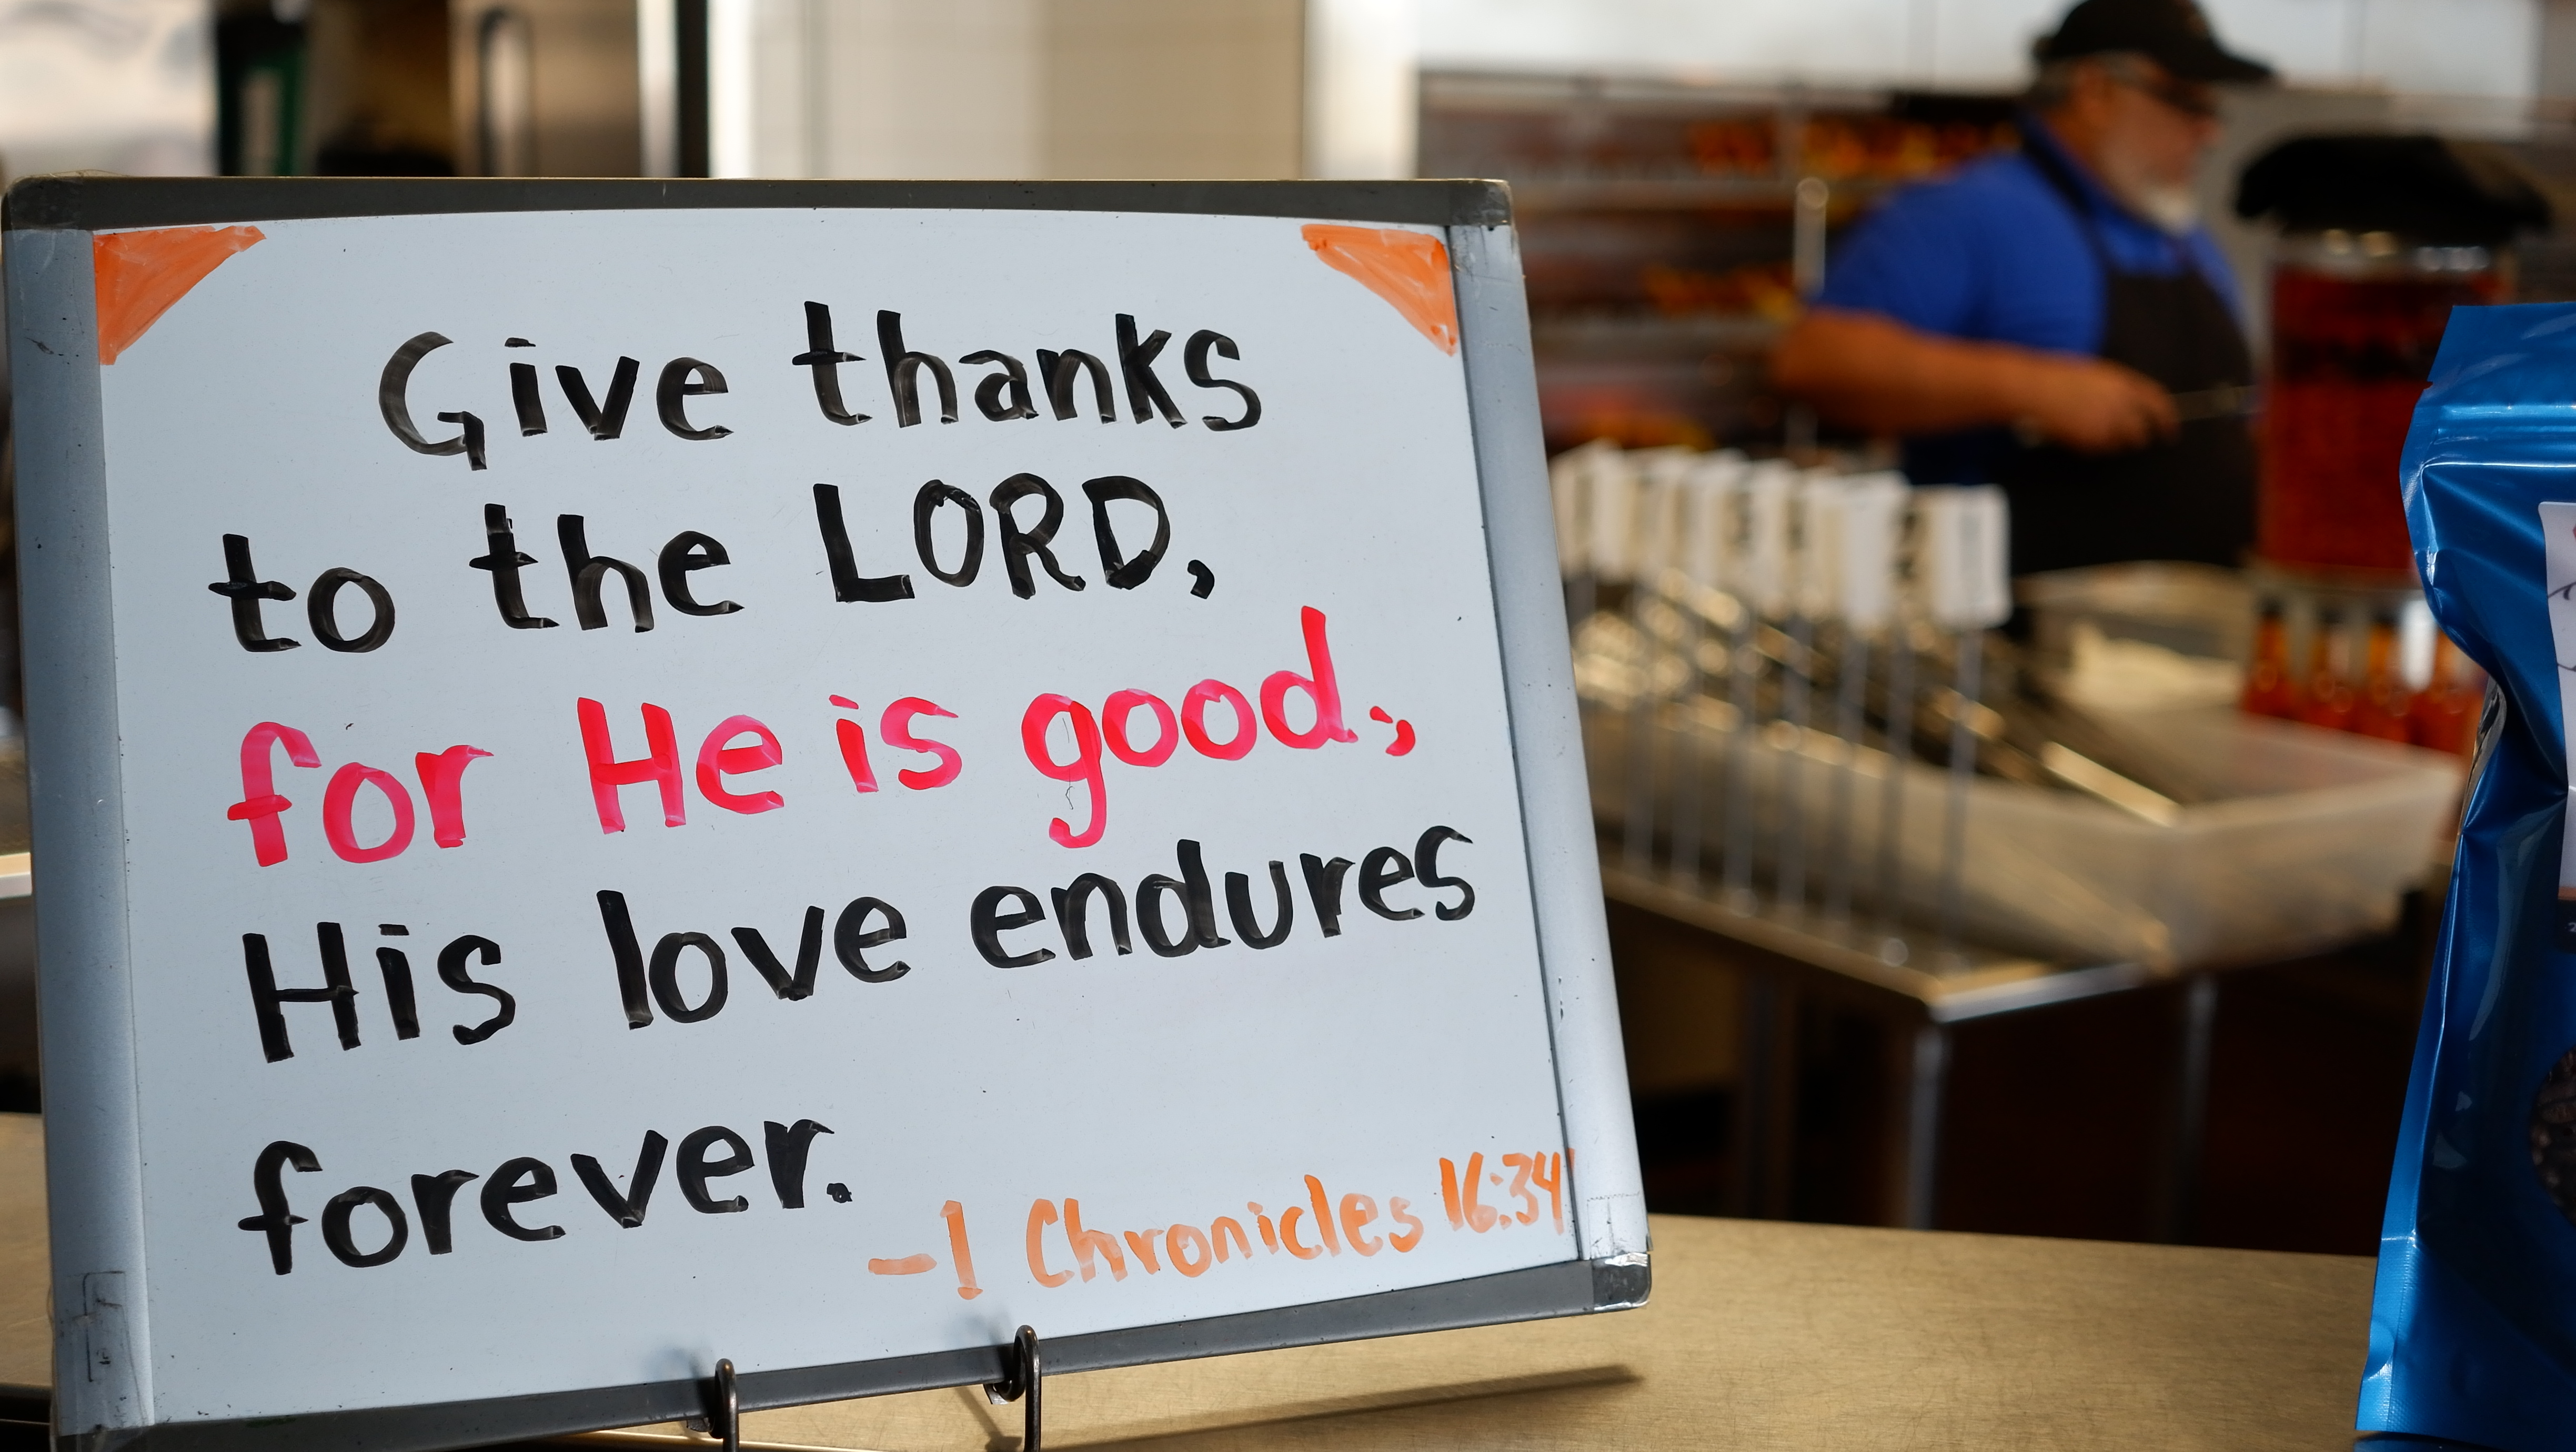 Give thanks
to the LORD,
for He is good;
His love endures
forever.
-1 Chronicles 16:34